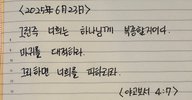 <2025年 6月 23日>
그런즉 너희는 하나님께 복종할지어다.
마귀를 대적하라.
그리하면 너희를 피하리라.
<야고보서 4:7>